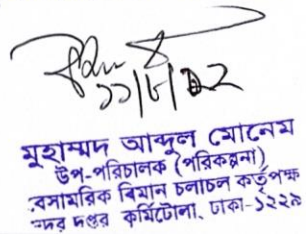 ১১/৮/১২
মুহাম্মদ আব্দুল মোনেম
উপ-পরিচালক (পরিকল্পনা)
বেসামরিক বিমান চলাচল কর্তৃপক্ষ
সদর দপ্তর কুর্মিটোলা, ঢাকা-১২২৯